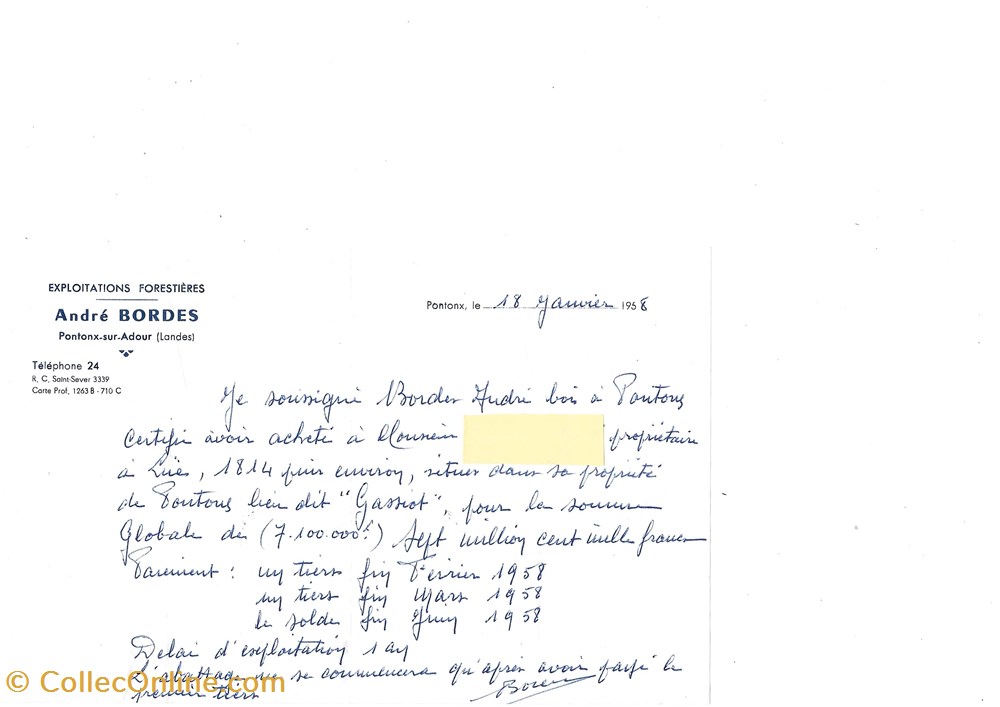 EXPLOITATIONS FORESTIÈRES
André BORDES
Pontonx-sur-Adour (Landes)
Téléphone 24
R. C. Saint-Sever 3339
Carte Prof. 1263 B - 710 C
Pontonx, le 18 Janvier 1958
Je soussigné Bordes André bois à Pontonx
Certifie avoir acheté à Monsieur propriétaire
à 1814 pins environ, situés dans sa propriété
de Pontonx lieu dit "Gassiot", pour la somme
Globale de (7.100.000f) Sept million cent mille francs
Paiement : un tiers fin Février 1958
un tiers fin Mars 1958
le solde fin Juin 1958
Delai d'exploitation 1 an
L'abattage ne se commencera qu'après avoir payé le
premier tiers
Bordes
© CollecOnline.com